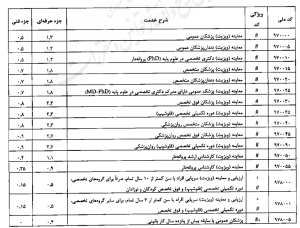 کد ملی ویژگی کد شرح خدمت جزء حرفه‌ای جزء فنی
۹۷۰۰۰۰ # معاینه (ویزیت) پزشکان عمومی ۱.۲ ۰.۵
۹۷۰۰۰۵ # معاینه (ویزیت) دندان‌پزشکان عمومی ۱.۲ ۰.۵
۹۷۰۰۱۰ # معاینه (ویزیت) دکتری تخصصی در علوم پایه (PhD) پروانه‌دار
۹۷۰۰۱۵ # معاینه (ویزیت) پزشکان متخصص ۰.۷
۹۷۰۰۲۰ # معاینه (ویزیت) دندان‌پزشکان متخصص ۰.۷
۹۷۰۰۲۵ # معاینه (ویزیت) پزشک عمومی دارای مدرک دکتری تخصصی در علوم پایه (MD-PhD) ۰.۷
۹۷۰۰۳۰ # معاینه (ویزیت) پزشکان فوق تخصص ۰.۸
۹۷۰۰۳۵ # معاینه (ویزیت) دوره تکمیلی تخصصی (فلوشیپ) ۰.۸
# معاینه (ویزیت) پزشکان متخصص روان‌پزشکی
۹۷۰۰۴۵ # معاینه (ویزیت) پزشکان فوق تخصص روان‌پزشکی
# معاینه (ویزیت) دوره تکمیلی تخصصی (فلوشیپ) روان‌پزشکی
۹۷۰۰۵۰ # معاینه (ویزیت) کارشناس ارشد پروانه‌دار ۱.۱ ۰.۴
۹۷۰۰۵۵ # معاینه (ویزیت) کارشناس پروانه‌دار ۰.۹
۹۷۸۰۰۰ ارزیابی و معاینه (ویزیت) سرپایی افراد با سن کمتر از ۱۰ سال تمام، صرفاً برای گروه‌های تخصصی،
دوره تکمیلی تخصصی (فلوشیپ) و فوق تخصص کودکان و نوزادان ۰.۵ ۰.۱۵
۹۷۸۰۰۱ ارزیابی و معاینه (ویزیت) سرپایی افراد با سن کمتر از ۷ سال تمام، برای سایر گروه‌های تخصصی،
دوره تکمیلی تخصصی (فلوشیپ) و فوق تخصص ۰.۵ ۰.۱۵
۹۷۸۰۰۵ # پزشکان عمومی با سابقه بیش از پانزده سال کار بالینی ۰.۴ ۰